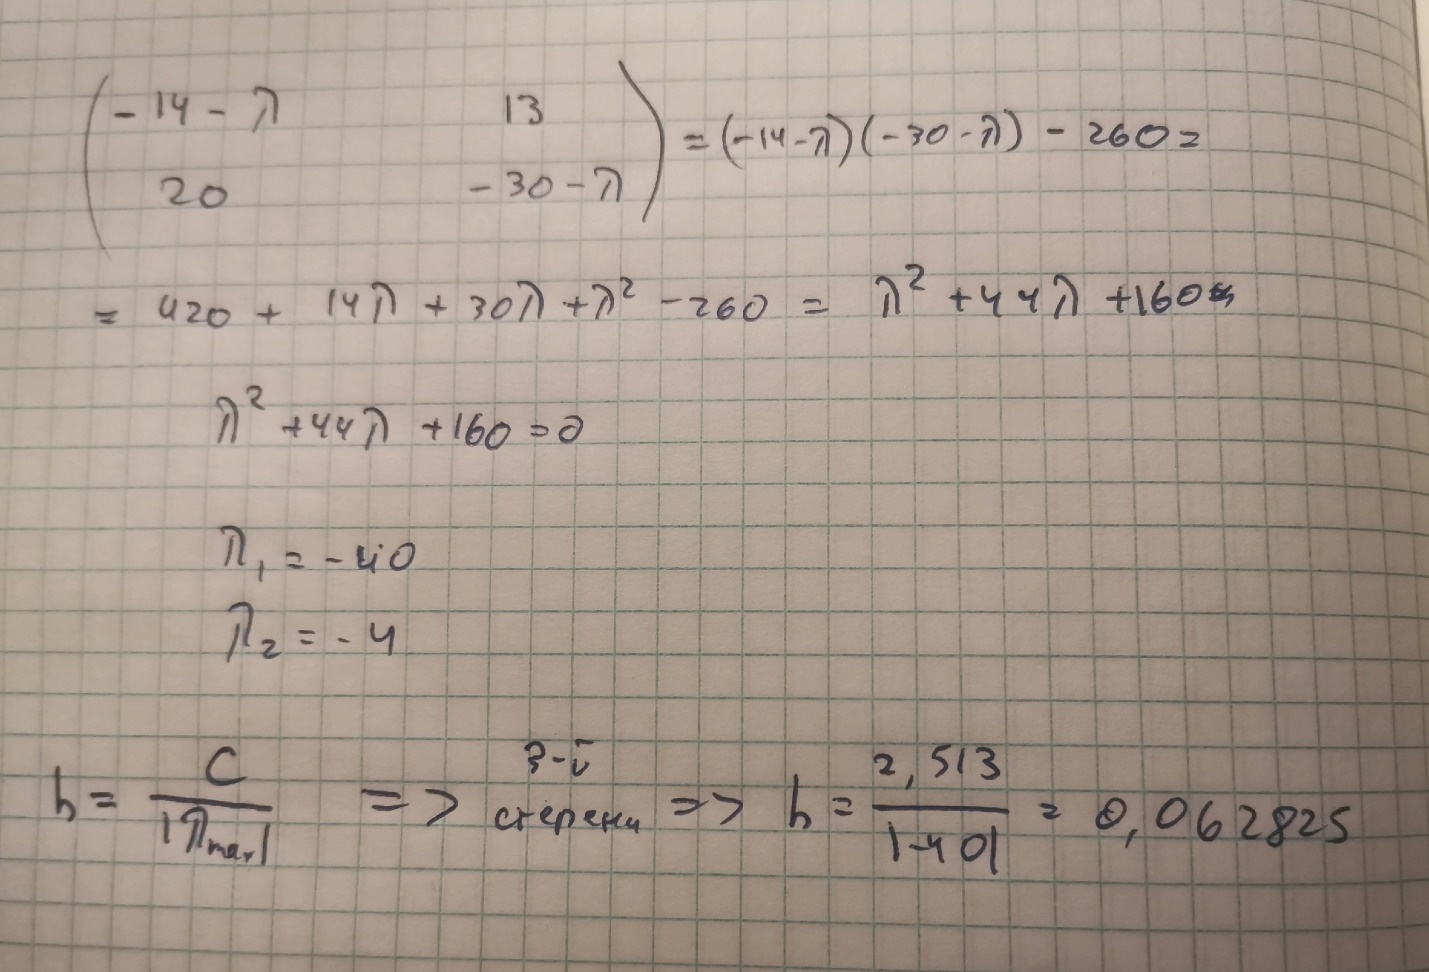 (-14-λ 13
20 -30-λ) = (-14-λ)(-30-λ) - 260 =
= 420 + 14λ + 30λ + λ² - 260 = λ² + 44λ + 160
λ² + 44λ + 160 = 0
λ₁ = -40
λ₂ = -4
h = C / |λmax| => 3-й степени => h = 2,513 / |-40| = 0,062825